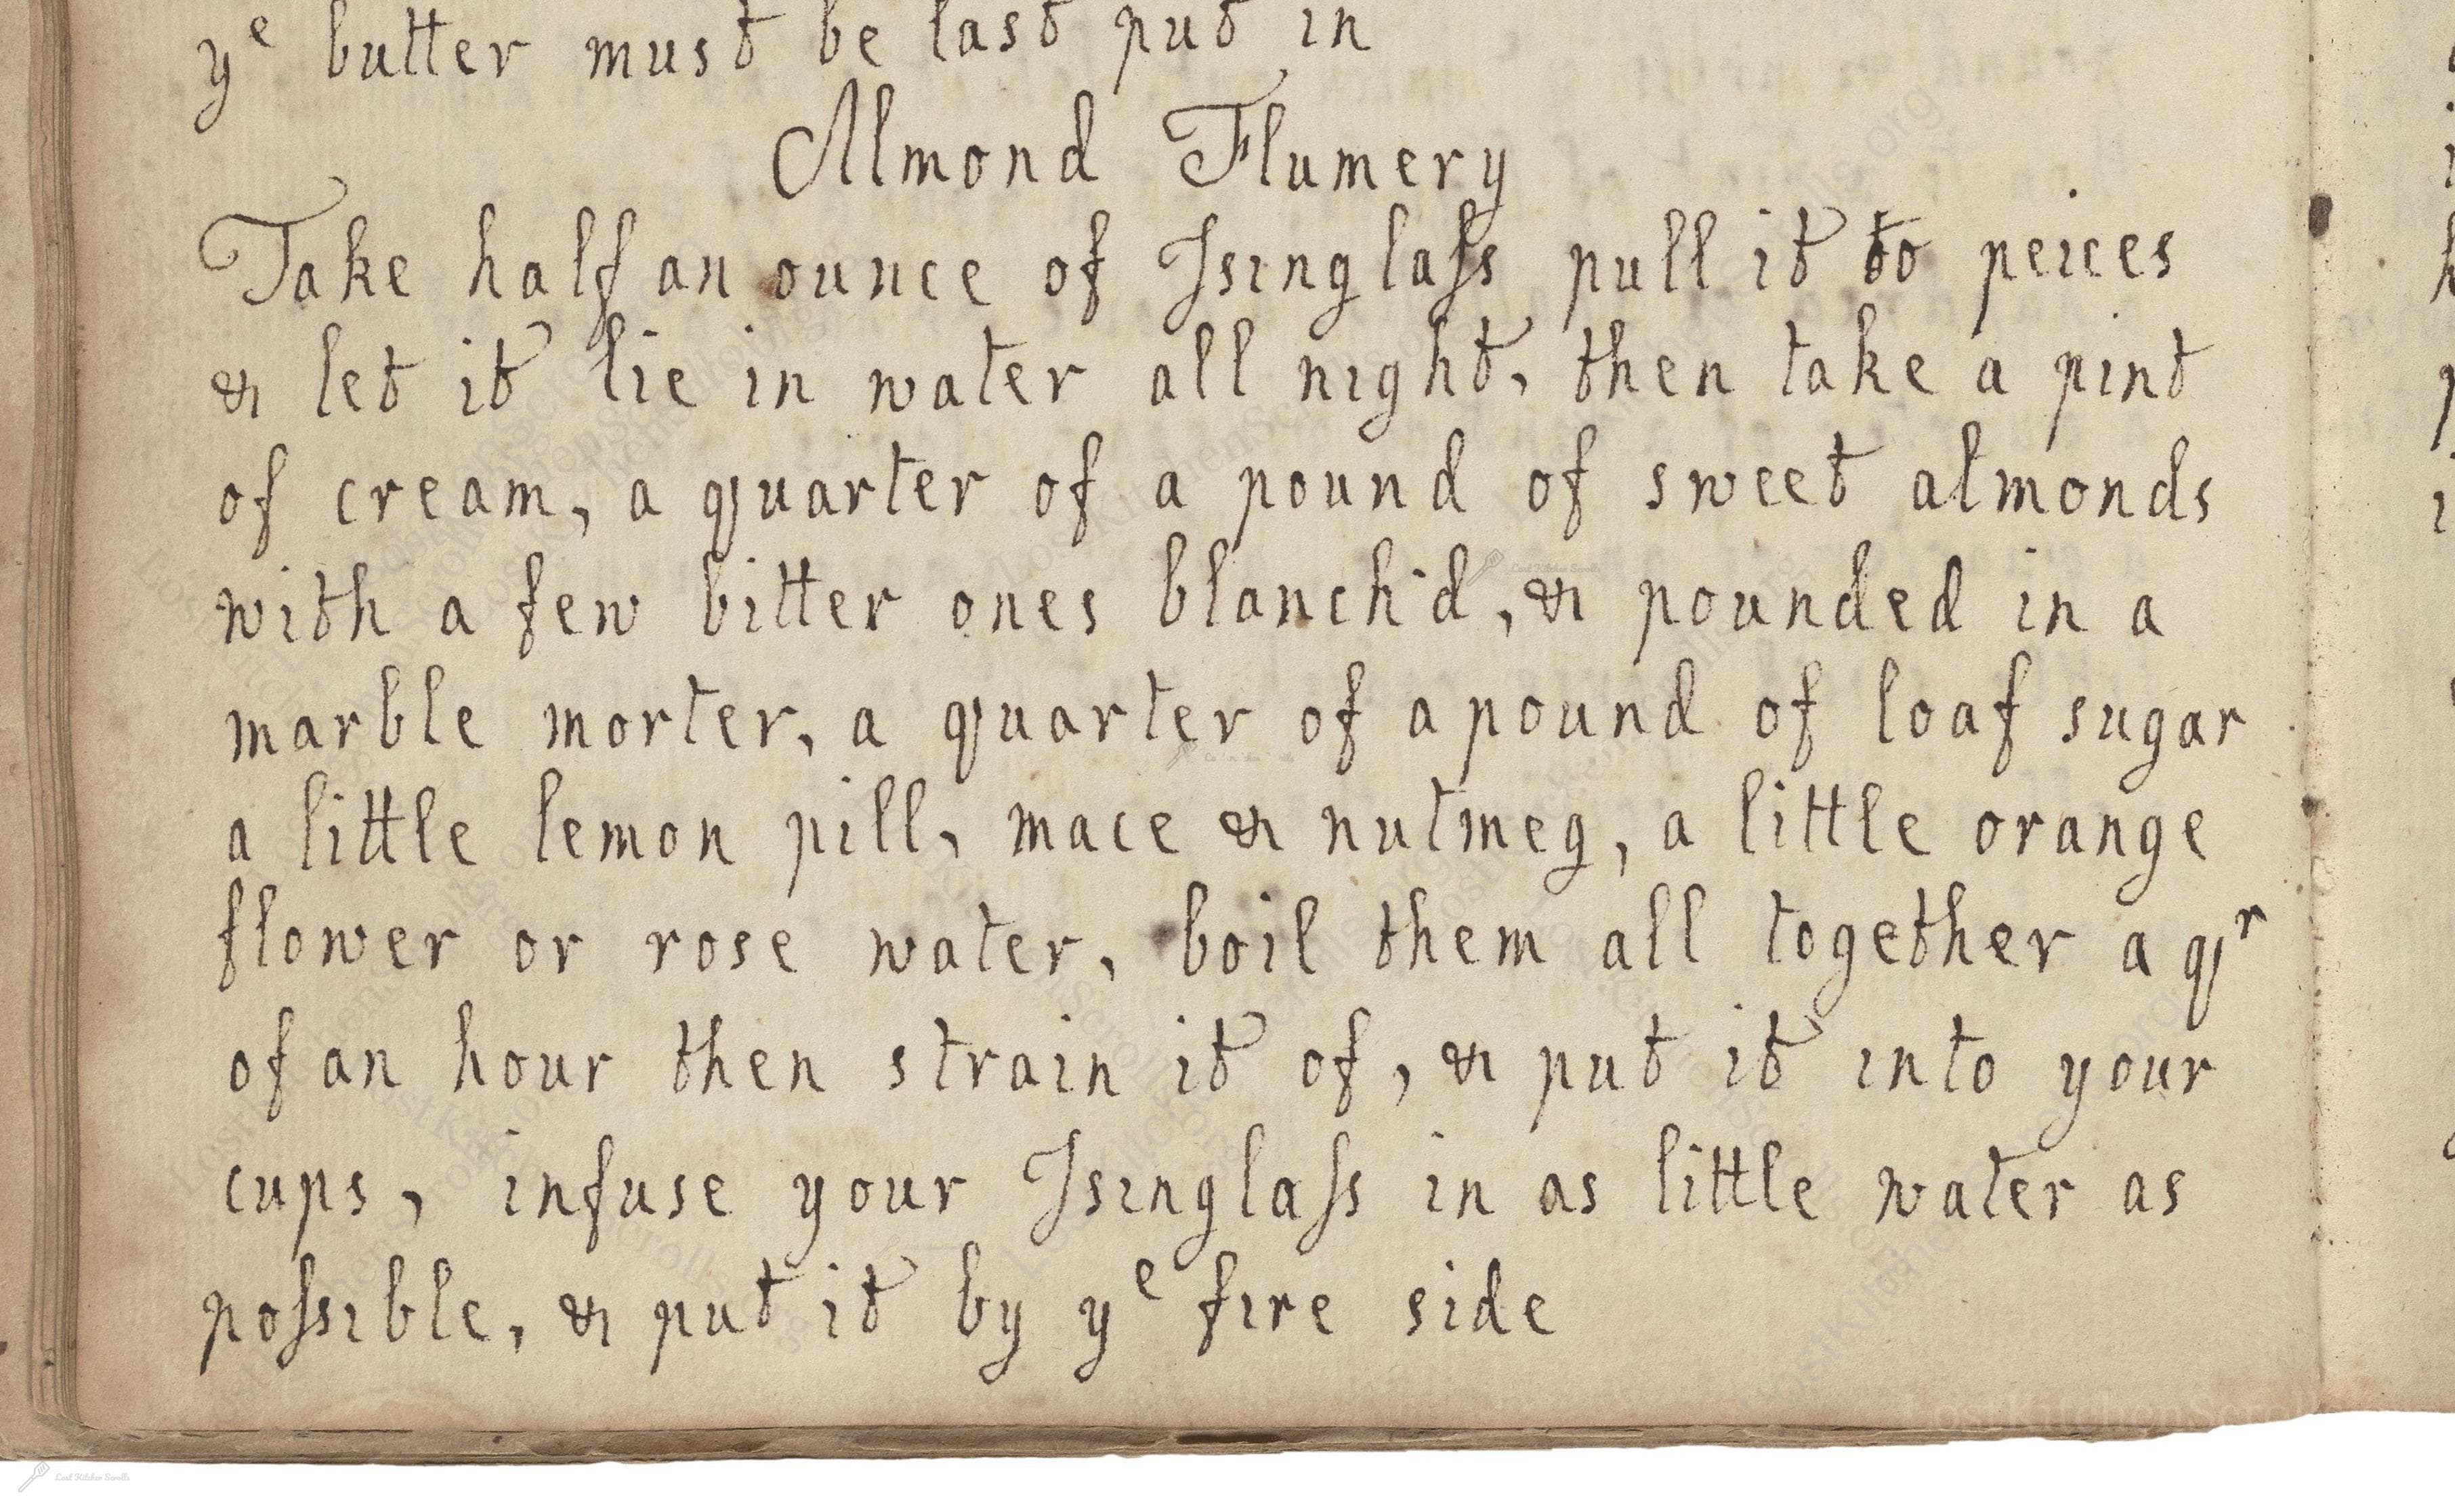 yᵉ butter must be last put in
Almond Flumery
Take half an ounce of Isinglaſs pull it to peices
& let it lie in water all night, then take a pint
of cream, a quarter of a pound of sweet almonds
with a few bitter ones blanch'd, & pounded in a
marble morter, a quarter of a pound of loaf sugar
a little lemon pill, mace & nutmeg, a little orange
flower or rose water, boil them all together a qʳ
of an hour then strain it of, & put it into your
cups, infuse your Isinglaſs in as little water as
poſsible, & put it by yᵉ fire side
Lost Kitchen Scrolls